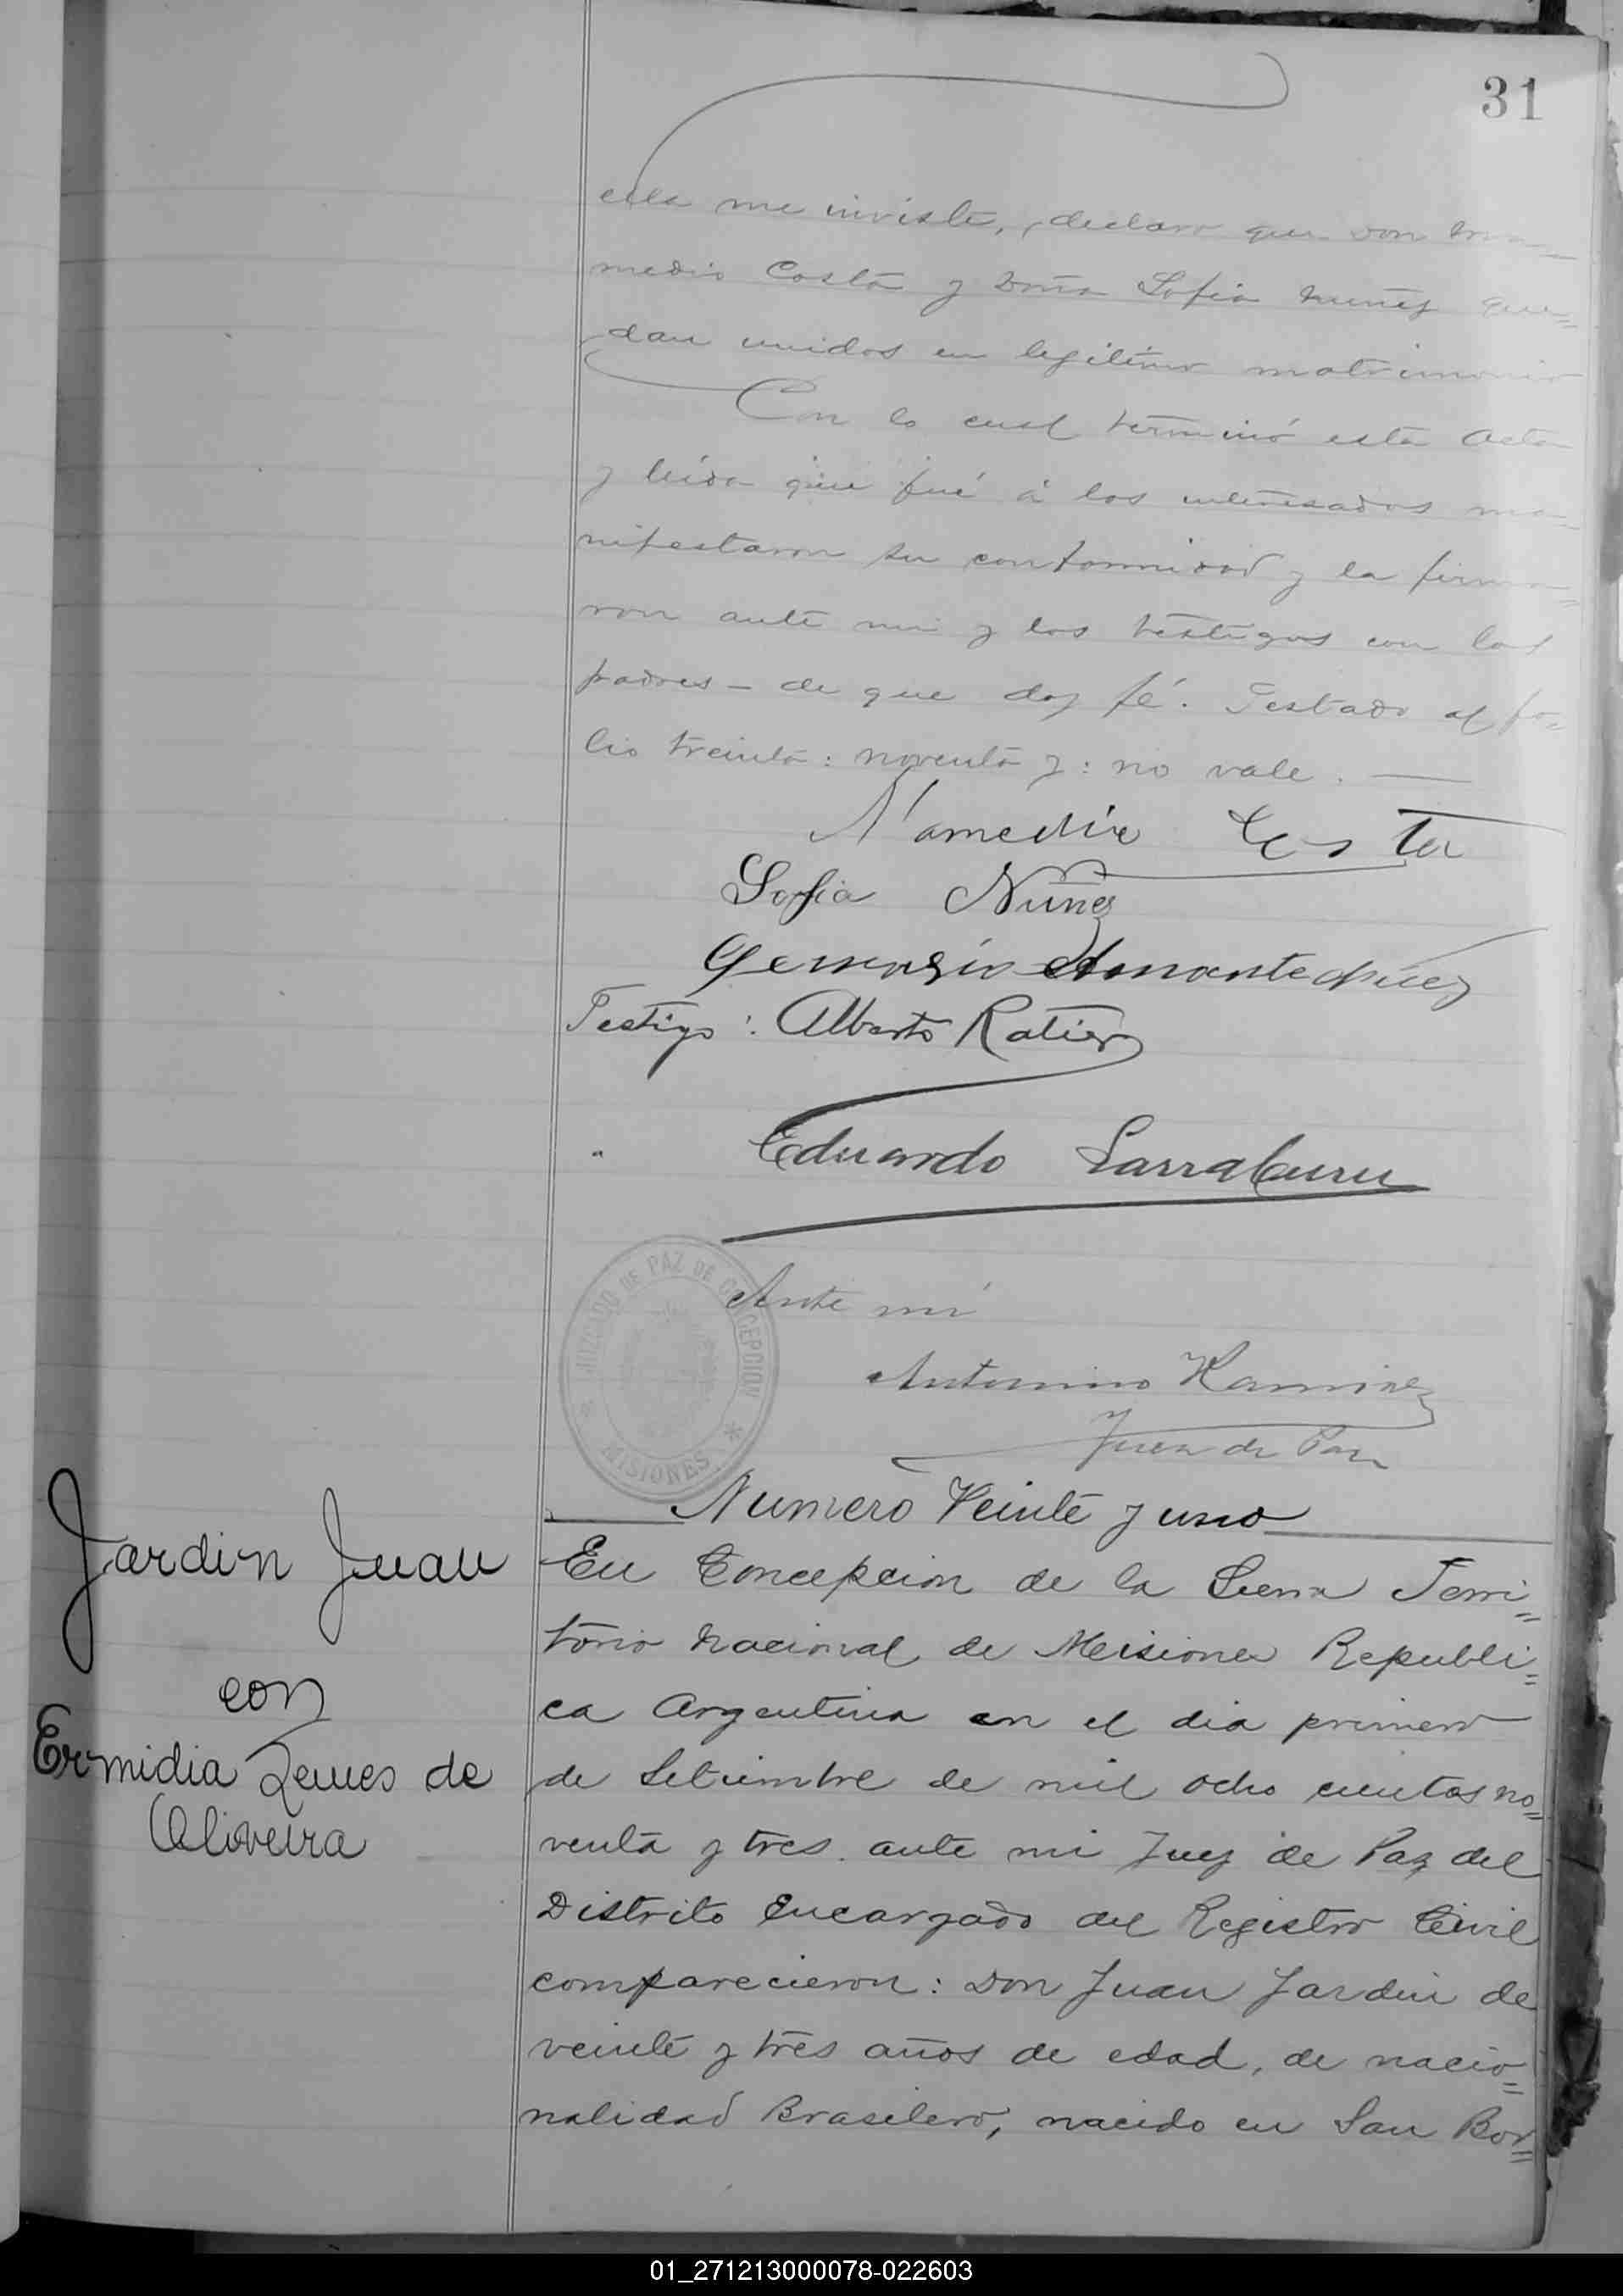 31
ella me inviste, declaro que Don Ma-
medio Costa y Doña Sofia Nuñez que=
dan unidos en legitimo matrimonio
Con lo cual terminó esta acta
y leida que fué á los interesados ma-
nifestaron su conformidad y la firma=
ron ante mi y los testigos con los
padres - de que doy fé. Testado al fo=
lio treinta: noventa y: no vale.
Costa
Sofia Nuñez
Testigo: Alberto Ratier
" Eduardo Larralburu
JUZGADO DE PAZ DE CONCEPCION
* MISIONES *
Ante mi
Antonino Ramirez
Juez de Paz
Numero Veinte y uno
Jardin Juan
con
Ermidia Lemes de
Oliveira
En Concepcion de la Sierra Terri=
torio Nacional de Misiones Republi=
ca Argentina en el dia primero
de Setiembre de mil ocho cientos no=
venta y tres. ante mi Juez de Paz del
Distrito Encargado del Registro Civil
comparecieron: Don Juan Jardin de
veinte y tres años de edad, de nacio=
nalidad Brasilero, nacido en San Bor=
01_271213000078-022603